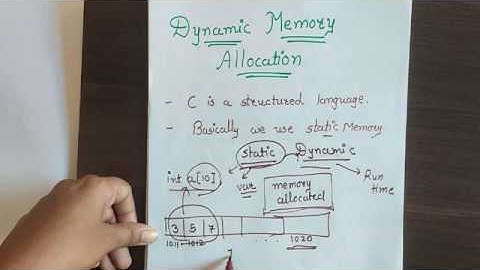 Dynamic Memory
Allocation
- C is a structured language.
- Basically we use static Memory
static Dynamic
int a[10] var memory allocated Run time
3 5 7
1011 1012 .... 1020